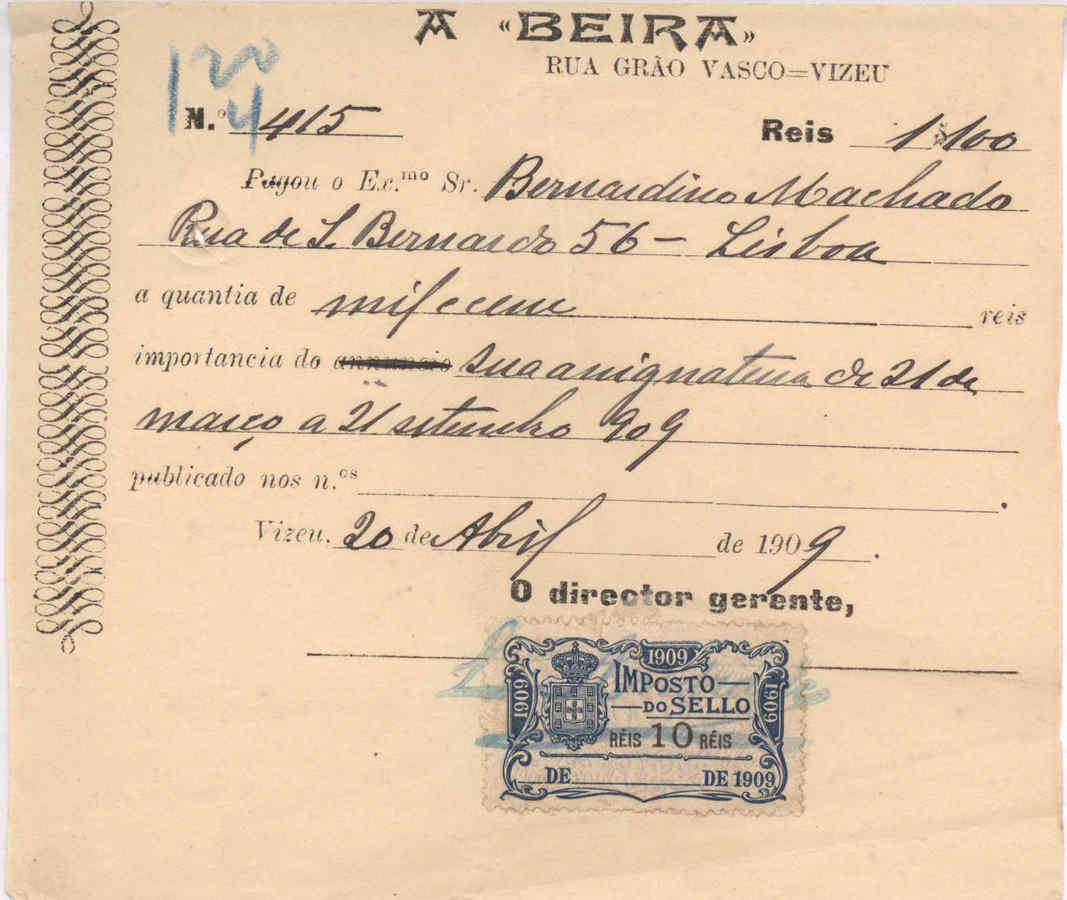 A «BEIRA»
RUA GRÃO VASCO=VIZEU
120
4
N.º 415 Reis 1$100
Pagou o Ex.mo Sr. Bernardino Machado
Rua de S. Bernardo 56 – Lisboa
a quantia de mil e cem reis
importancia do annuncio sua assignatura de 21 de
março a 21 setembro 909
publicado nos n.os
Vizeu, 20 de Abril de 1909.
O director gerente,
1909
1909
1909
IMPOSTO
DO SELLO
RÉIS 10 RÉIS
DE DE 1909